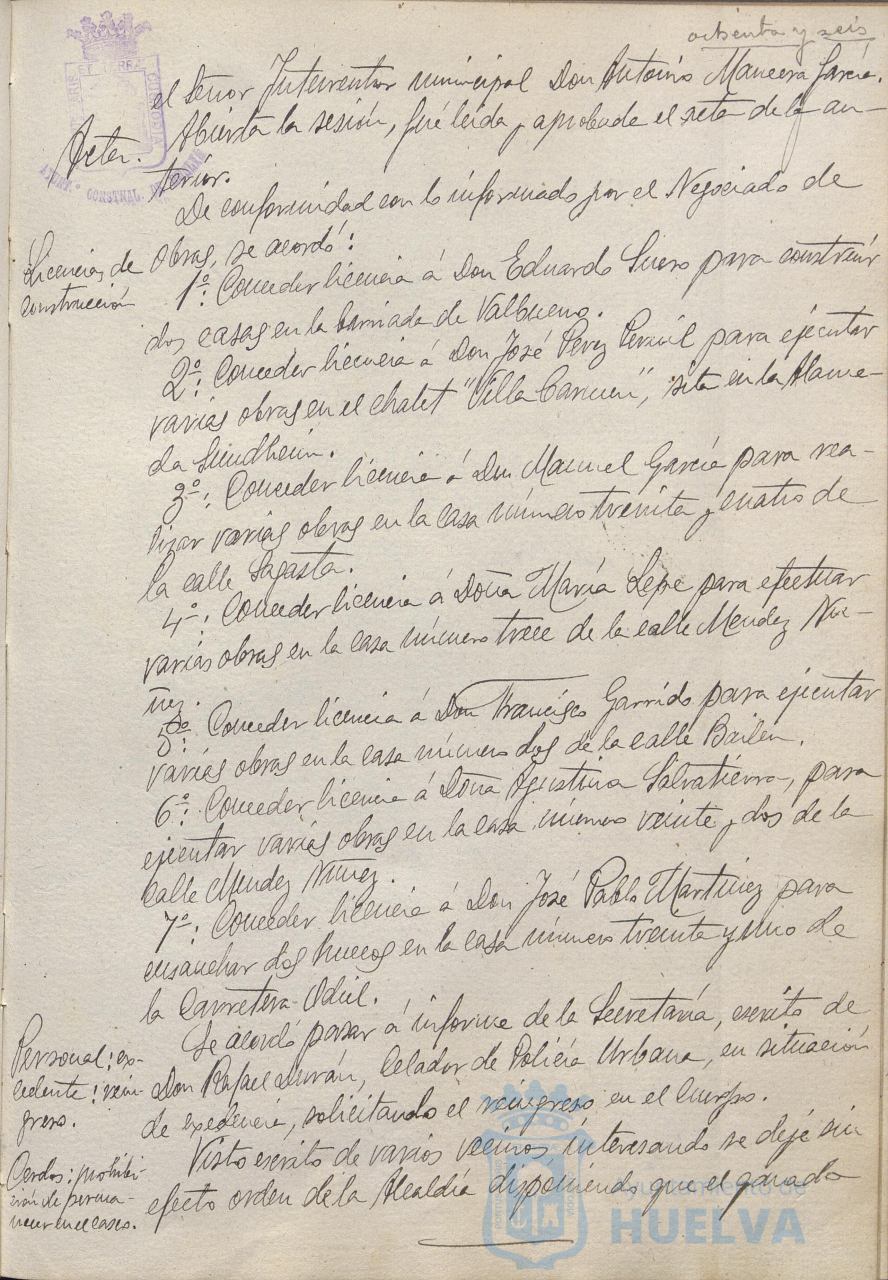 ochenta y seis
el Señor Interventor municipal Don Antonio Mancera García.
Acta.
Abierta la sesión, fué leida y aprobada el acta de la an-
terior.
De conformidad con lo informado por el Negociado de
Licencias de
construcción
Obras, se acordó:
1º: Conceder licencia á Don Eduardo Suero para construir
dos casas en la barriada de Valbueno.
2º: Conceder licencia á Don José Perez Persuil para ejecutar
varias obras en el chalet "Villa Carmen", sita en la Alame-
da Sundheim.
3º: Conceder licencia á Don Manuel García para rea-
lizar varias obras en la casa número treinta y cuatro de
la calle Sagasta.
4º: Conceder licencia á Doña María Lepe para efectuar
varias obras en la casa número trece de la calle Mendez Nu-
ñez.
5º: Conceder licencia á Don Francisco Garrido para ejecutar
varias obras en la casa número dos de la calle Bailen.
6º: Conceder licencia á Doña Agustina Salvatierra, para
ejecutar varias obras en la casa número veinte y dos de la
calle Mendez Núñez.
7º: Conceder licencia á Don José Pablo Martinez para
ensanchar dos huecos en la casa número treinta y uno de
la Carretera-Odiel.
Personal: ex-
cedente: rein-
greso.
Se acordó pasar á informe de la Secretaría, escrito de
Don Rafael Durán, Celador de Policía Urbana, en situación
de exedencia, solicitando el reingreso en el Cuerpo.
Cerdos: prohibi-
ción de perma-
necer en el casco.
Visto escrito de varios vecinos interesando se deje sin
efecto orden de la Alcaldía disponiendo que el ganado
Ayuntamiento de
HUELVA